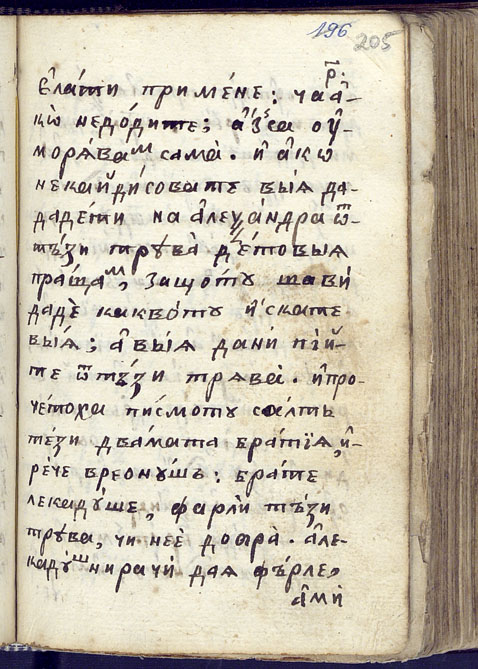 196
205
р҃.
є҆ла́ти примѐне: ча а҆-
кѡ недо́дите; а҆́з са оу҆-
морѧ́ваᵐ сама̀. и҆ а҆́кѡ
нека́йдисовате вы́ѧ да-
даде́ти на а҆леѯа́ндра ѿ-
тъ́зи тръ́ва де́то выѧ
пра́щаᵐ, защо́тꙋ ща ви́
дадѐ какво́тꙋ и҆́скате
вы́ѧ; а҆ вы́ѧ да ни пїй-
те ѿ тъ́зи трѧва̀. и҆ про-
че́тоха писмо́тꙋ са́лть
те́зи двама́та бра́тїѧ, и҆-
ре́че вреонꙋ́шъ: бра́те
лекадꙋ́ше, фарлѝ тъ́зи
тръва, чи не́е добра̀. а҆ле-
кадꙋ́ш нирачѝ да ѧ фъ́рле,
а҆́мѝ